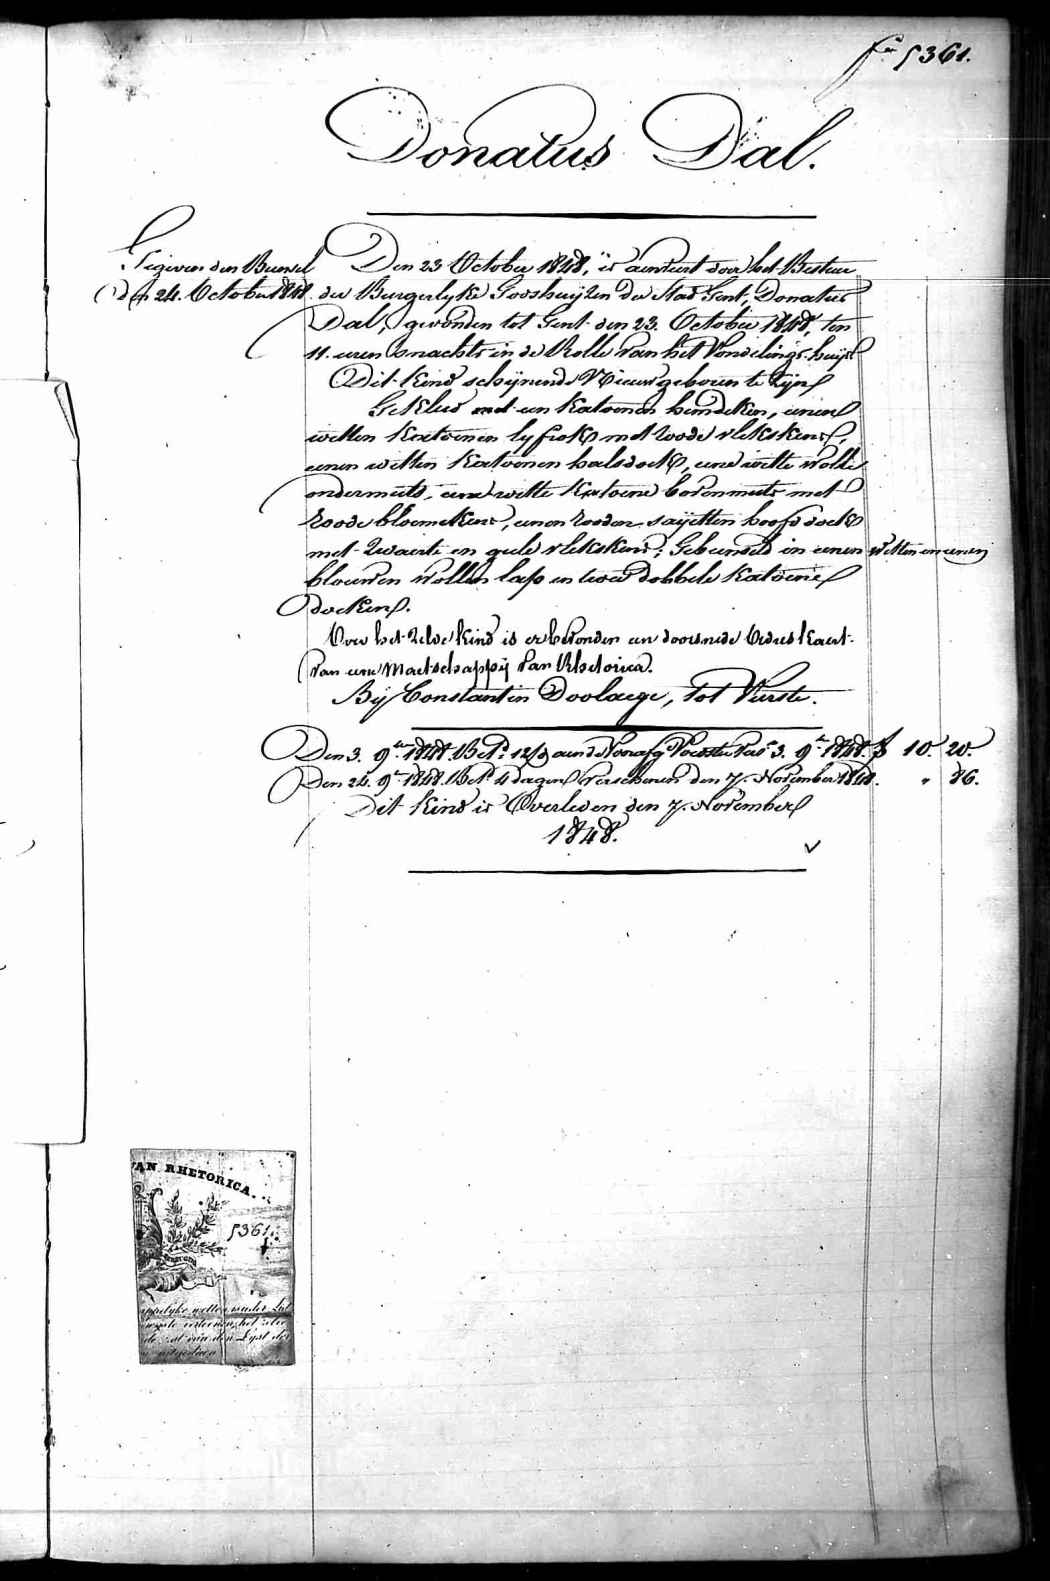 5361.
Donatus Dal.
Gegeven den Bunsel
den 24. October 1848.
Den 23 October 1848, is aenveert door het Bestuer
der Burgerlyke Godshuyzen der Stad Gent, Donatus
Dal, gevonden tot Gent den 23. October 1848, ten
11. uren snachts in de Rolle van het Vondelings-huys
Dit kind schijnende Nieuwgeboren te zijn
Gekleed met een katoenen hemdeken, eenen
witten katoenen lyfrok met roode vlekskens,
eenen witten katoenen halsdoek, eene witte wolle
ondermuts, eene witte katoene bovenmuts met
roode bloemekens, eenen rooden sayetten hoofddoek
met zwarte en gele vlekskens; Gebunseld in eenen witten en eenen
blauwen wollen lap en twee dobbele katoene
doeken.
Over het zelve kind is er bevonden een doorsnede kaert
van eene Maetschappij van Rhetorica.
Bij Constantin Doolaege, tot Vurste.
Den 3. 9.er 1848. Bet.d aen de 3. 9.r 1848. f 10. 20.
Den 24. 9.r 1848. Bet.d 4 dagen Verschenen den 7. November 1848. " 86.
Dit kind is Overleden den 7. November
1848.
VAN RHETORICA.
5361.